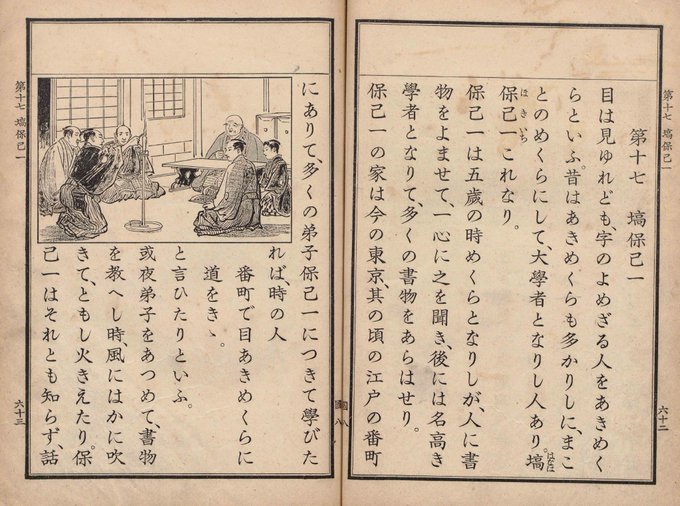 第十七 塙保己一
第十七 塙保己一
目は見ゆれども、字のよめざる人をあきめく
らといふ。昔はあきめくらも多かりしに、まこ
とのめくらにして、大學者となりし人あり。塙
はなは
保己一これなり。
ほきいち
保己一は五歲の時めくらとなりしが、人に書
物をよませて、一心に之を聞き、後には名高き
學者となりて、多くの書物をあらはせり。
保己一の家は今の東京、其の頃の江戸の番町
六十二
にありて、多くの弟子保己一につきて學びた
れば、時の人
番町で目あきめくらに
道をきゝ。
と言ひたりといふ。
或夜弟子をあつめて、書物
を教へし時、風にはかに吹
きて、ともし火きえたり。保
己一はそれとも知らず、話
第十七 塙保己一
六十三